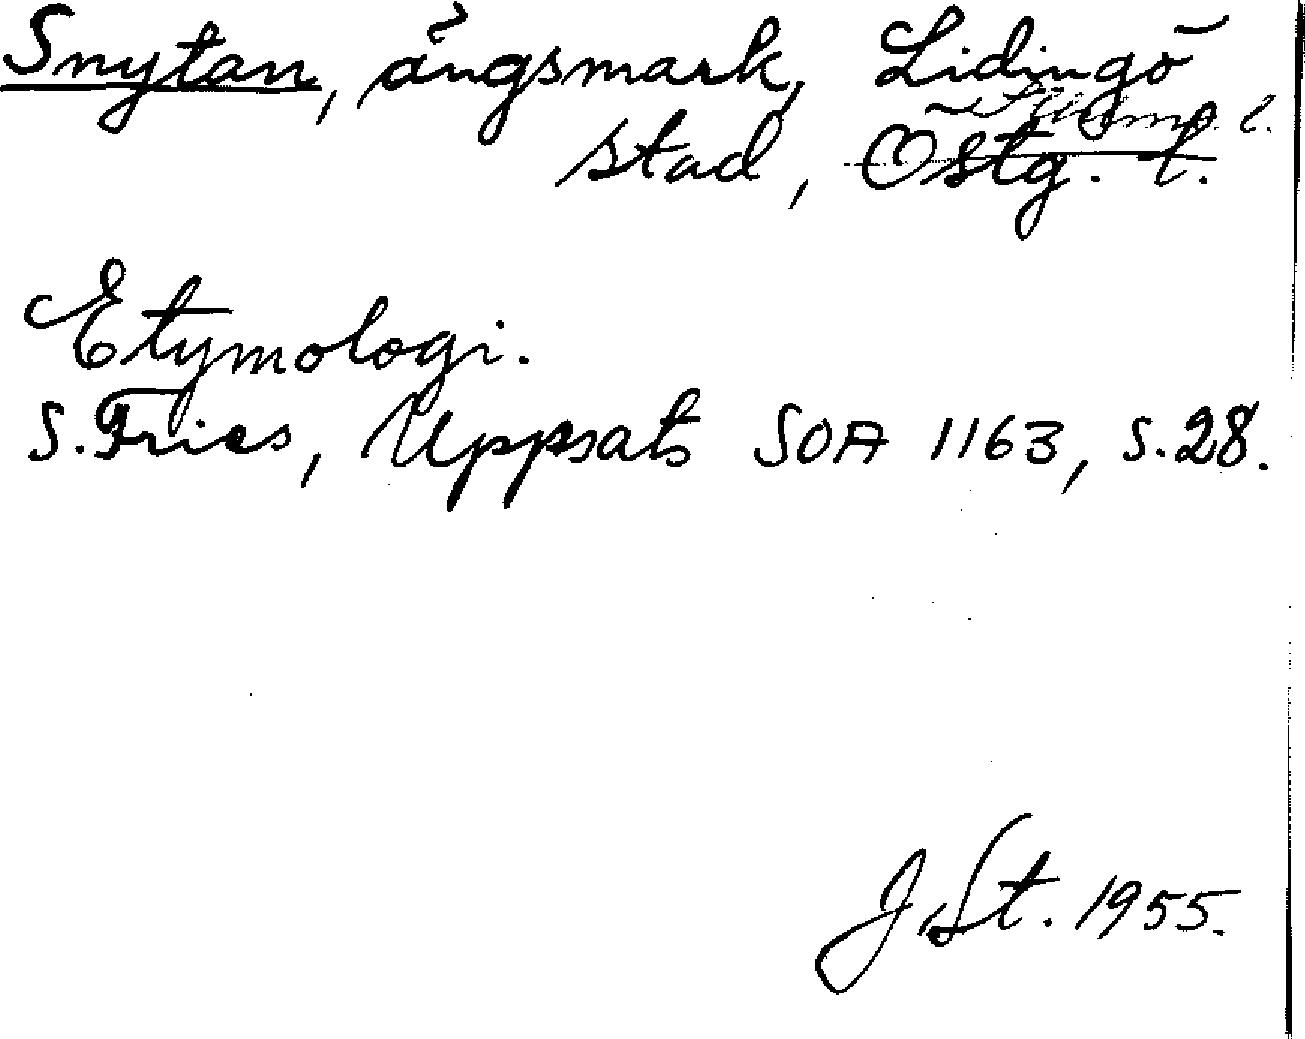 Snytan, ängsmark, Lidingö
Sthlms l.
stad, Östg. l.
Etymologi.
S. Fries, Uppsats SOA 1163, s. 28.
J. St. 1955.